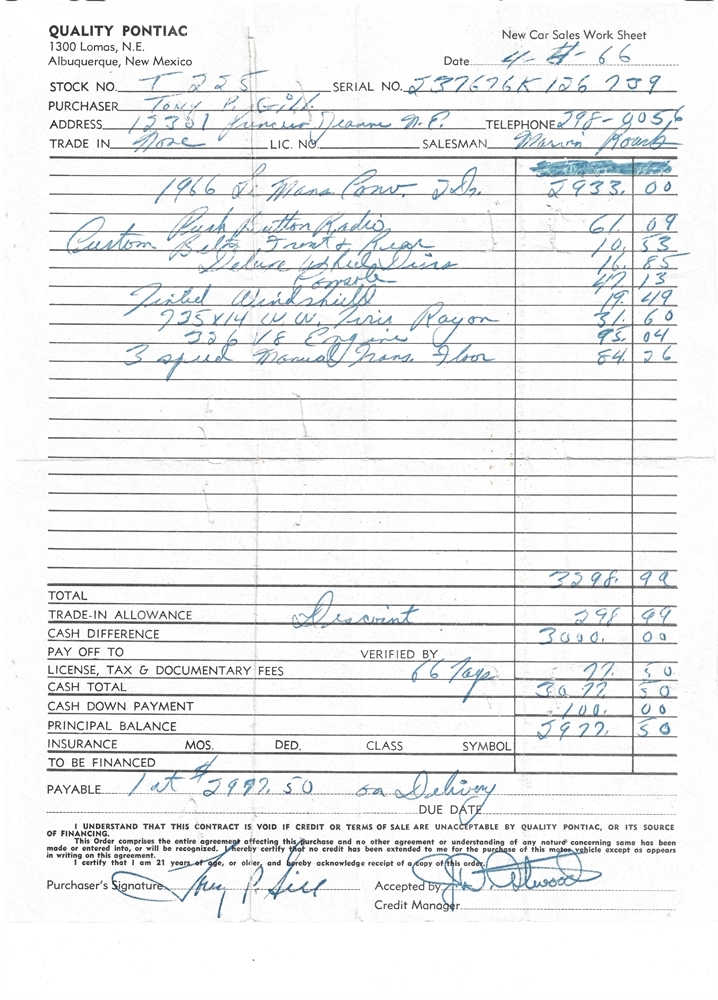 QUALITY PONTIAC
1300 Lomas, N.E.
Albuquerque, New Mexico
New Car Sales Work Sheet
Date 4- -66
STOCK NO. T 225 SERIAL NO. 237676K126739
PURCHASER Tony P. Gill
ADDRESS 12301 Princess Jeanne N.E. TELEPHONE 298-9056
TRADE IN None LIC. NO. SALESMAN Marvin
1966 Le Mans Conv. 2 Dr. 2933. 00
Push Button Radio 61. 09
Custom Belts Front & Rear 10. 53
Deluxe Wheel Discs 16. 85
Console 47. 13
Tinted Windshield 19. 49
735X14 W.W. Tires Rayon 31. 60
326 V8 Engine 95. 04
3 speed Manual Trans. Floor 84. 26
3298. 99
TOTAL
TRADE-IN ALLOWANCE Discount 298 99
CASH DIFFERENCE 3000. 00
PAY OFF TO VERIFIED BY
LICENSE, TAX & DOCUMENTARY FEES 66 Tags 77. 50
CASH TOTAL 3077. 50
CASH DOWN PAYMENT 100. 00
PRINCIPAL BALANCE 2977. 50
INSURANCE MOS. DED. CLASS SYMBOL
TO BE FINANCED
PAYABLE 1 at $2977.50 on Delivery
DUE DATE
I UNDERSTAND THAT THIS CONTRACT IS VOID IF CREDIT OR TERMS OF SALE ARE UNACCEPTABLE BY QUALITY PONTIAC, OR ITS SOURCE
OF FINANCING.
This Order comprises the entire agreement affecting this purchase and no other agreement or understanding of any nature concerning same has been
made or entered into, or will be recognized. I hereby certify that no credit has been extended to me for the purchase of this motor vehicle except as appears
in writing on this agreement.
I certify that I am 21 years of age, or older, and hereby acknowledge receipt of a copy of this order.
Purchaser's Signature Tony P. Gill Accepted by
Credit Manager